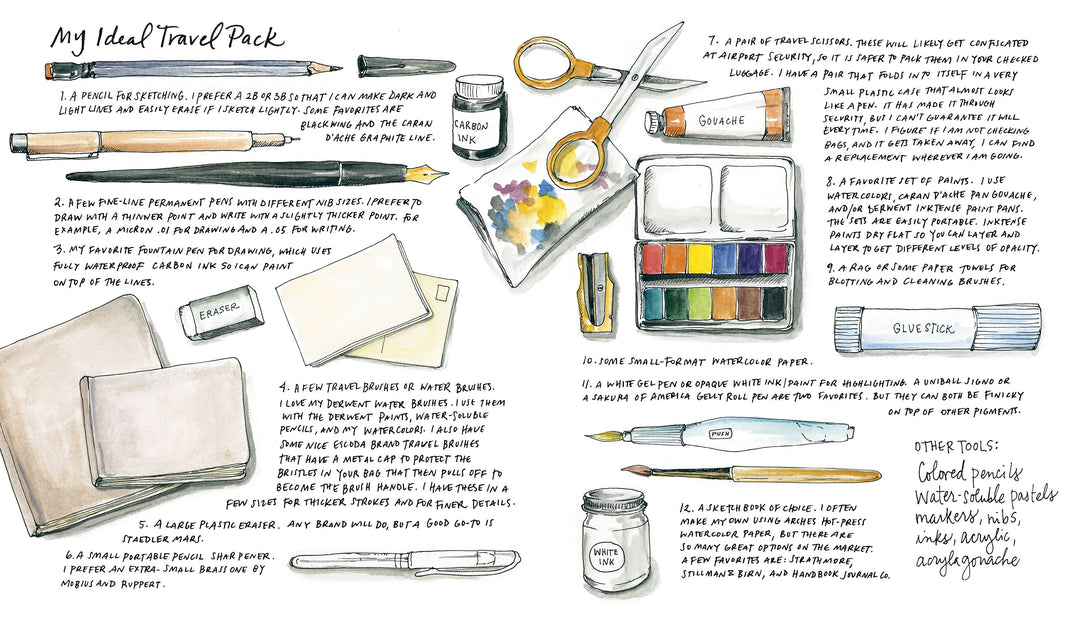 My Ideal Travel Pack
1. A PENCIL FOR SKETCHING. I PREFER A 2B OR 3B SO THAT I CAN MAKE DARK AND
LIGHT LINES AND EASILY ERASE IF I SKETCH LIGHTLY. SOME FAVORITES ARE
BLACKWING AND THE CARAN
D'ACHE GRAPHITE LINE.
CARBON
INK
2. A FEW FINE-LINE PERMANENT PENS WITH DIFFERENT NIB SIZES. I PREFER TO
DRAW WITH A THINNER POINT AND WRITE WITH A SLIGHTLY THICKER POINT. FOR
EXAMPLE, A MICRON .01 FOR DRAWING AND A .05 FOR WRITING.
3. MY FAVORITE FOUNTAIN PEN FOR DRAWING, WHICH USES
FULLY WATERPROOF CARBON INK SO I CAN PAINT
ON TOP OF THE LINES.
ERASER
4. A FEW TRAVEL BRUSHES OR WATER BRUSHES.
I LOVE MY DERWENT WATER BRUSHES. I USE THEM
WITH THE DERWENT PAINTS, WATER-SOLUBLE
PENCILS, AND MY WATERCOLORS. I ALSO HAVE
SOME NICE ESCODA BRAND TRAVEL BRUSHES
THAT HAVE A METAL CAP TO PROTECT THE
BRISTLES IN YOUR BAG THAT THEN PULLS OFF TO
BECOME THE BRUSH HANDLE. I HAVE THESE IN A
FEW SIZES FOR THICKER STROKES AND FOR FINER DETAILS.
5. A LARGE PLASTIC ERASER. ANY BRAND WILL DO, BUT A GOOD GO-TO IS
STAEDLER MARS.
6. A SMALL PORTABLE PENCIL SHARPENER.
I PREFER AN EXTRA-SMALL BRASS ONE BY
MOBIUS AND RUPPERT.
7. A PAIR OF TRAVEL SCISSORS. THESE WILL LIKELY GET CONFISCATED
AT AIRPORT SECURITY, SO IT IS SAFER TO PACK THEM IN YOUR CHECKED
LUGGAGE. I HAVE A PAIR THAT FOLDS INTO ITSELF IN A VERY
SMALL PLASTIC CASE THAT ALMOST LOOKS
LIKE A PEN. IT HAS MADE IT THROUGH
SECURITY, BUT I CAN'T GUARANTEE IT WILL
EVERY TIME. I FIGURE IF I AM NOT CHECKING
BAGS, AND IT GETS TAKEN AWAY, I CAN FIND
A REPLACEMENT WHEREVER I AM GOING.
GOUACHE
8. A FAVORITE SET OF PAINTS. I USE
WATERCOLORS, CARAN D'ACHE PAN GOUACHE,
AND/OR DERWENT INKTENSE PAINT PANS.
THE SETS ARE EASILY PORTABLE. INKTENSE
PAINTS DRY FLAT SO YOU CAN LAYER AND
LAYER TO GET DIFFERENT LEVELS OF OPACITY.
9. A RAG OR SOME PAPER TOWELS FOR
BLOTTING AND CLEANING BRUSHES.
GLUESTICK
10. SOME SMALL-FORMAT WATERCOLOR PAPER.
11. A WHITE GEL PEN OR OPAQUE WHITE INK/PAINT FOR HIGHLIGHTING. A UNIBALL SIGNO OR
A SAKURA OF AMERICA GELLY ROLL PEN ARE TWO FAVORITES. BUT THEY CAN BOTH BE FINICKY
ON TOP OF OTHER PIGMENTS.
PUSH
WHITE
INK
12. A SKETCHBOOK OF CHOICE. I OFTEN
MAKE MY OWN USING ARCHES HOT-PRESS
WATERCOLOR PAPER, BUT THERE ARE
SO MANY GREAT OPTIONS ON THE MARKET.
A FEW FAVORITES ARE: STRATHMORE,
STILLMAN & BIRN, AND HANDBOOK JOURNAL CO.
OTHER TOOLS:
Colored pencils
water-soluble pastels
markers, nibs,
inks, acrylic,
acryla gouache